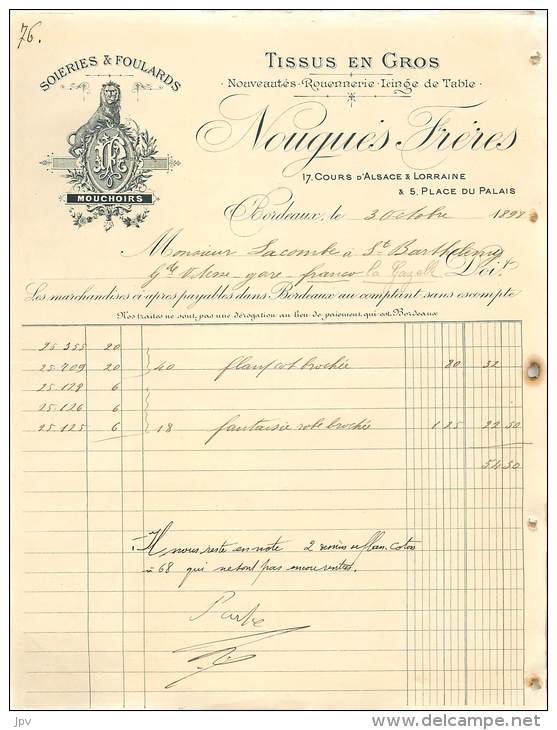 76.
SOIERIES & FOULARDS
MOUCHOIRS
TISSUS EN GROS
Nouveautés-Rouennerie-Linge de Table
Nougués Frères
17, COURS D'ALSACE & LORRAINE
& 5, PLACE DU PALAIS
Bordeaux, le 3 Octobre 189
Monsieur Lacombe à St Barthélemy
Gde Vitesse - gare - franco Doit
Les marchandises ci après payables dans Bordeaux au comptant sans escompte
Nos traites ne sont pas une dérogation au lieu de paiement qui est Bordeaux
25 355 20
25.709 20 40 brochée 80 32
25.129 6
25.126 6
25.125 6 18 fantaisie robe brochée 1 25 22 50
54 50
Il nous reste en note 2
à 68 qui ne sont pas encore rentrés.
jpv
www.delcampe.net